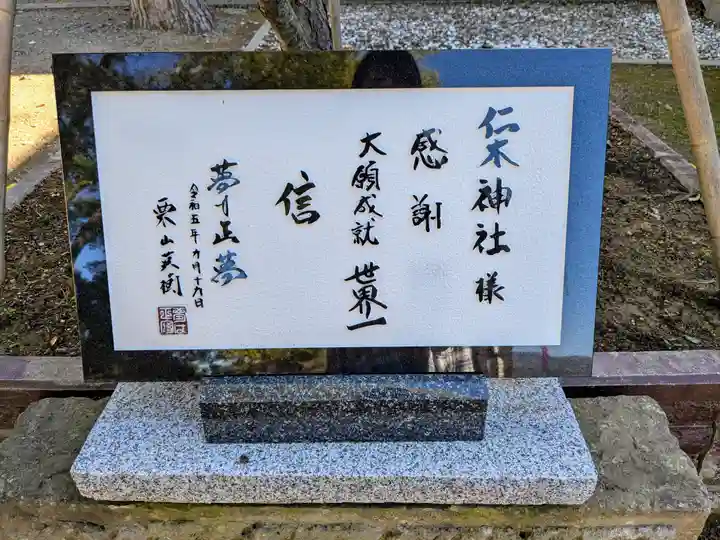 仁木神社様
感謝
大願成就 世界一
信
夢は正夢
令和五年九月十九日
栗山英樹